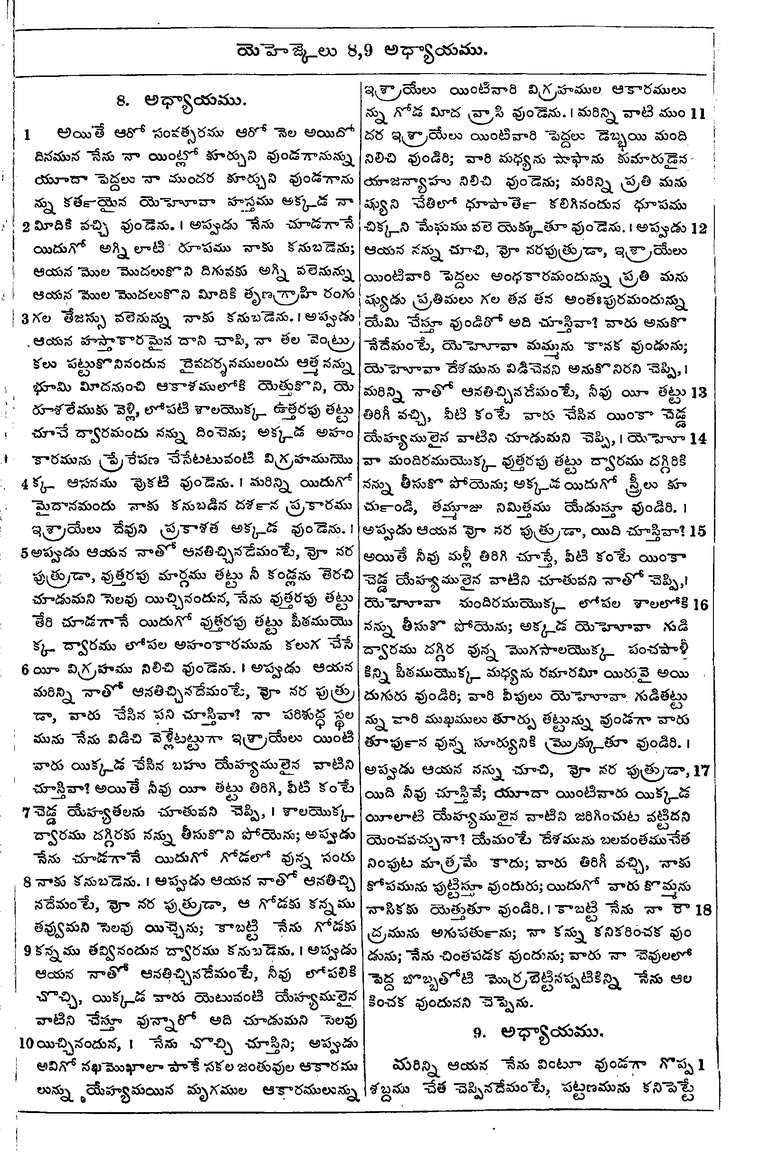 యెహెజ్కేలు 8,9 అధ్యాయము.
8. అధ్యాయము.
1 అయితే ఆరో సంవత్సరము ఆరో నెల అయిదో
దినమున నేను నా యింట్లో కూర్చుని వుండగానున్ను
యూదా పెద్దలు నా ముందర కూర్చుని వుండగాను
న్ను కర్తయైన యెహెూవా హస్తము అక్కడ నా
2 మీదికి వచ్చి వుండెను. । అప్పుడు నేను చూడగానే
యిదుగో అగ్ని లాటి రూపము నాకు కనుబడెను;
ఆయన మొల మొదలుకొని దిగువకు అగ్ని వలెనున్ను
ఆయన మొల మొదలుకొని మీదికి తృణగ్రాహి రంగు
3 గల తేజస్సు వలెనున్ను నాకు కనుబడెను. । అప్పుడు
ఆయన హస్తాకారమైన దాని చాపి, నా తల వెంట్రు
కలు పట్టుకొనినందున దైవదర్శనములందు ఆత్మ నన్ను
భూమి మీదనుంచి ఆకాశములోకి యెత్తుకొని, యె
రూశలేముకు వెళ్లి, లోపటి శాలయొక్క ఉత్తరపు తట్టు
చూచే ద్వారమందు నన్ను దించెను; అక్కడ అహం
కారమును ప్రేరేపణ చేసేటటువంటి విగ్రహముయొ
4 క్క ఆసనము వుకటి వుండెను. । మరిన్ని యిదుగో
మైదానమందు నాకు కనుబడిన దర్శన ప్రకారము
ఇశ్రాయేలు దేవుని ప్రకాశత అక్కడ వుండెను. ।
5 అప్పుడు ఆయన నాతో ఆనతిచ్చినదేమంటే, వూ నర
పుత్రుడా, వుత్తరపు మార్గము తట్టు నీ కండ్లను తెరచి
చూడుమని సెలవు యిచ్చినందున, నేను వుత్తరపు తట్టు
తేరి చూడగానే యిదుగో వుత్తరపు తట్టు పీఠముయొ
క్క ద్వారము లోపల అహంకారమును కలుగ చేసే
6 యీ విగ్రహము నిలిచి వుండెను. । అప్పుడు ఆయన
మరిన్ని నాతో ఆనతిచ్చినదేమంటే, వూ నర పుత్రు
డా, వారు చేసిన పని చూస్తివా? నా పరిశుద్ధ స్థల
మును నేను విడిచి వెళ్లేటట్టుగా ఇశ్రాయేలు యింటి
వారు యిక్కడ చేసిన బహు యేహ్యములైన వాటిని
చూస్తివా? అయితే నీవు యీ తట్టు తిరిగి, వీటి కంటే
7 చెడ్డ యేహ్యతలను చూతువని చెప్పి, । శాలయొక్క
ద్వారము దగ్గిరకు నన్ను తీసుకొని పోయెను; అప్పుడు
నేను చూడగానే యిదుగో గోడలో వున్న సందు
8 నాకు కనుబడెను. । అప్పుడు ఆయన నాతో ఆనతిచ్చి
నదేమంటే, వూ నర పుత్రుడా, ఆ గోడకు కన్నము
తవ్వుమని సెలవు యిచ్చెను; కాబట్టి నేను గోడకు
9 కన్నము తవ్వినందున ద్వారము కనుబడెను. । అప్పుడు
ఆయన నాతో ఆనతిచ్చినదేమంటే, నీవు లోపలికి
చొచ్చి, యిక్కడ వారు యెటువంటి యేహ్యములైన
వాటిని చేస్తూ వున్నారో అది చూడుమని సెలవు
10 యిచ్చినందున, । నేను చొచ్చి చూస్తిని; అప్పుడు
అవిగో నఖముఖాలా పాకే సకల జంతువుల ఆకారము
లున్ను యేహ్యమయిన మృగముల ఆకారములున్ను
ఇశ్రాయేలు యింటివారి విగ్రహముల ఆకారములు
న్ను గోడ మీద వ్రాసి వుండెను. । మరిన్ని వాటి ముం 11
దర ఇశ్రాయేలు యింటివారి పెద్దలు డెబ్భయి మంది
నిలిచి వుండిరి; వారి మధ్యను షాఫాను కుమారుడైన
యాజన్యాహు నిలిచి వుండెను; మరిన్ని ప్రతి మను
ష్యుని చేతిలో ధూపార్తి కలిగినందున ధూపము
చిక్కని మేఘము వలె యెక్కుతూ వుండెను. । అప్పుడు 12
ఆయన నన్ను చూచి, వూ నరపుత్రుడా, ఇశ్రాయేలు
యింటివారి పెద్దలు అంధకారమందున్ను ప్రతి మను
ష్యుడు ప్రతిమలు గల తన తన అంతఃపురమందున్ను
యేమి చేస్తూ వుండిరో అది చూస్తివా? వారు అనుకొ
నేదేమంటే, యెహెూవా మమ్మును కానక వుండును;
యెహెూవా దేశమును విడిచెనని అనుకొనిరని చెప్పి, ।
మరిన్ని నాతో ఆనతిచ్చినదేమంటే, నీవు యీ తట్టు 13
తిరిగి వచ్చి, వీటి కంటే వారు చేసిన యింకా చెడ్డ
యేహ్యములైన వాటిని చూడుమని చెప్పి, । యెహెూ 14
వా మందిరముయొక్క వుత్తరపు తట్టు ద్వారము దగ్గిరికి
నన్ను తీసుకొ పోయెను; అక్కడ యిదుగో స్త్రీలు కూ
చుండి, తమ్మూజు నిమిత్తము యేడుస్తూ వుండిరి. ।
అప్పుడు ఆయన వూ నర పుత్రుడా, యిది చూస్తివా? 15
అయితే నీవు మళ్లీ తిరిగి చూస్తే, వీటి కంటే యింకా
చెడ్డ యేహ్యములైన వాటిని చూతువని నాతో చెప్పి, ।
యెహెూవా మందిరముయొక్క లోపల శాలలోకి 16
నన్ను తీసుకొ పోయెను; అక్కడ యెహెూవా గుడి
ద్వారము దగ్గిర వున్న మొగసాలయొక్క పంచపాళీ
కిన్ని పీఠముయొక్క మధ్యను రమారమీ యిరువై అయి
దుగురు వుండిరి; వారి వీపులు యెహెూవా గుడితట్టు
న్ను వారి ముఖములు తూర్పు తట్టున్ను వుండగా వారు
తూర్పున వున్న సూర్యునికి మ్రొక్కుతూ వుండిరి. ।
అప్పుడు ఆయన నన్ను చూచి, వూ నర పుత్రుడా, 17
యిది నీవు చూస్తివే; యూదా యింటివారు యిక్కడ
యీలాటి యేహ్యములైన వాటిని జరిగించుట వట్టిదని
యెంచవచ్చునా? యేమంటే దేశమును బలవంతముచేత
నింపుట మాత్రమే కాదు; వారు తిరిగీ వచ్చి, నాకు
కోపమును పుట్టిస్తూ వుందురు; యిదుగో వారు కొమ్మను
నాసికకు యెత్తుతూ వుండిరి. । కాబట్టి నేను నా రౌ 18
ద్రమును అగుపర్తును; నా కన్ను కనికరించక వుం
డును; నేను చింతపడక వుందును; వారు నా చెవులలో
పెద్ద బొబ్బతోటి మొర్రబెట్టినప్పటికిన్ని నేను ఆల
కించక వుందునని చెప్పెను.
9. అధ్యాయము.
మరిన్ని ఆయన నేను వింటూ వుండగా గొప్ప 1
శబ్దము చేత చెప్పినదేమంటే, పట్టణమును కనిపెట్టే